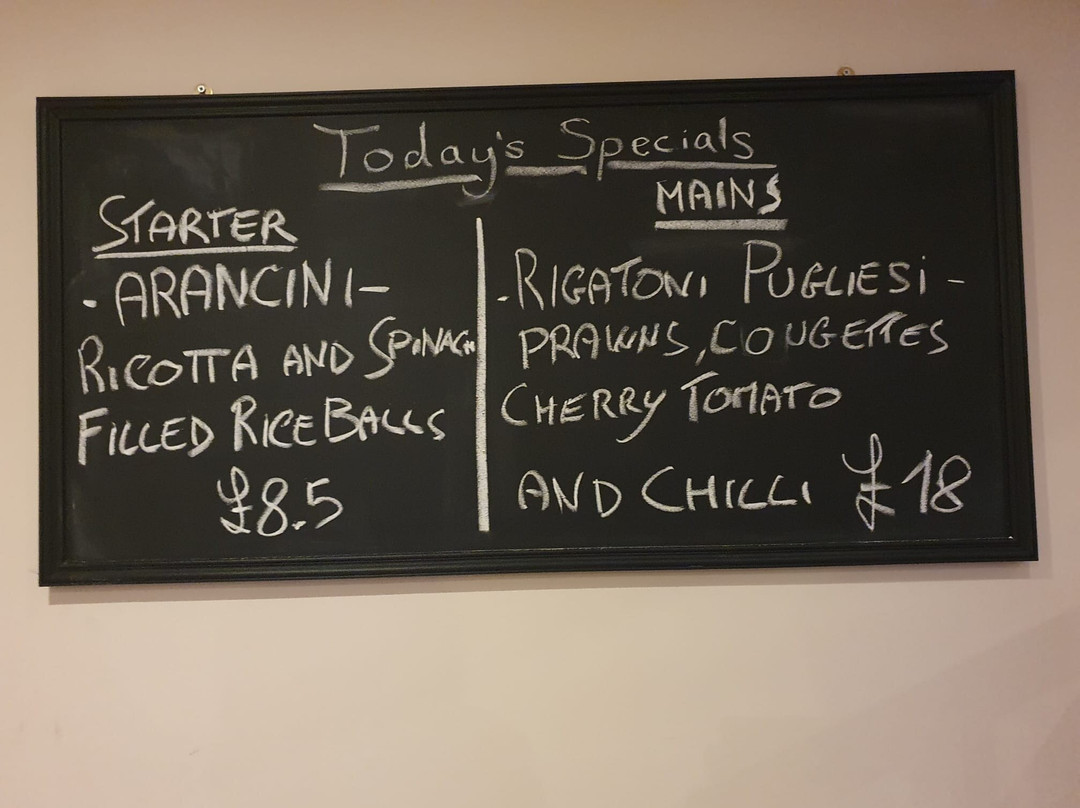 Today's Specials
STARTER
- ARANCINI -
RICOTTA AND SPINACH
FILLED RICE BALLS
£8.5
MAINS
- RIGATONI PUGLIESI -
PRAWNS, COUGETTES
CHERRY TOMATO
AND CHILLI £18